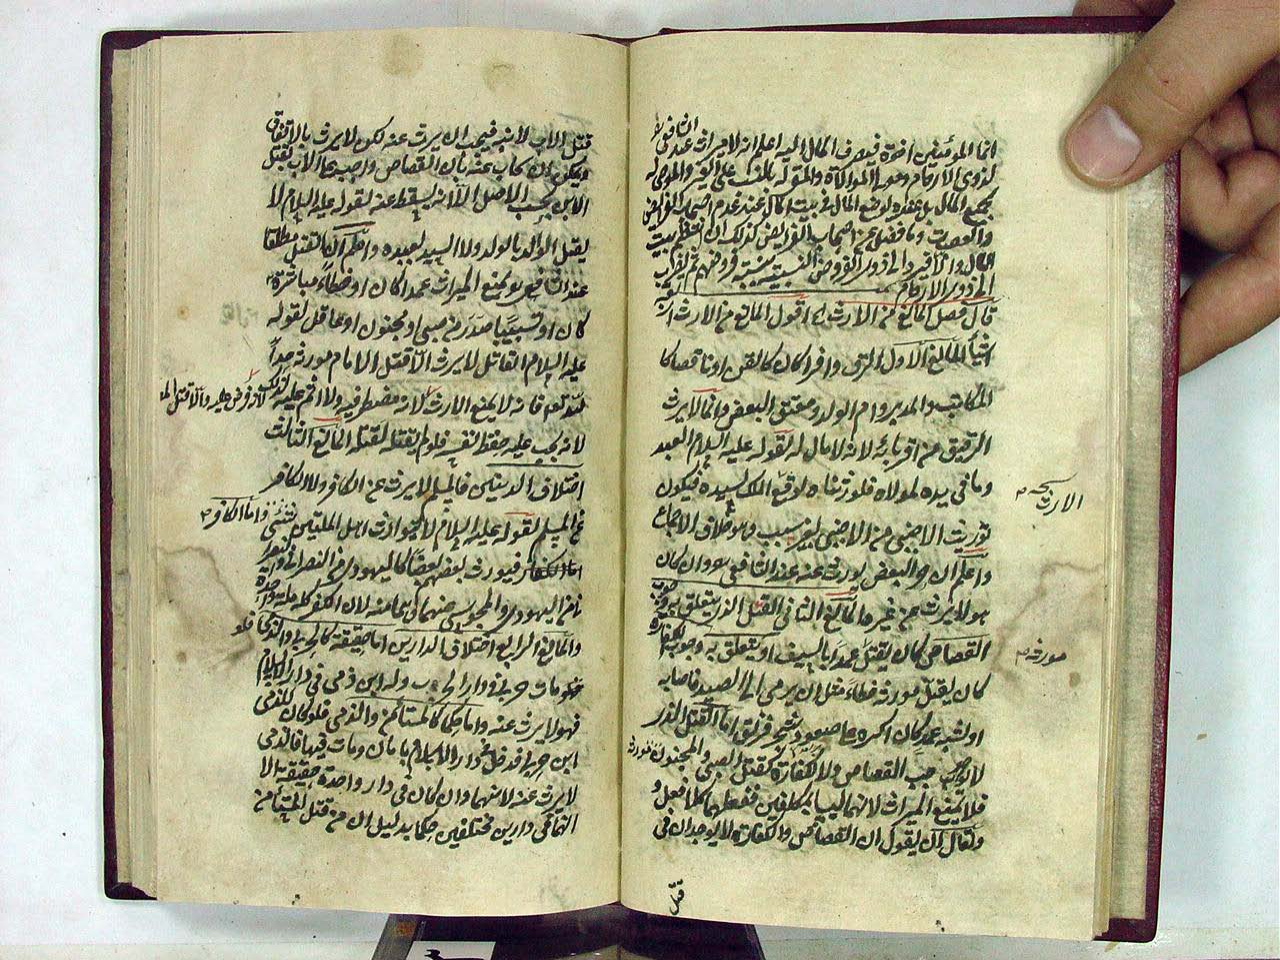 انما المؤمنون اخوة فيصرف المال اليه اعلم انه لا ميراث عند الشافعي
لذوى الارحام ومولى الموالاة والمقر له بالنسب على الغير والموصى له
بجميع المال بل عنده يوضع المال فى بيت المال عند عدم اصحاب الفرايض
والعصبات وما فضل عن اصحاب الفرايض كذلك ان انتظم بيت
المال والا فيرد الى ذوى الفروض النسبية بنسبة فروضهم ثم يصرف
الى ذوى الارحام
قال فصل المانع من الارث اقول المانع من الارث اربعة
اشياء المانع الاول الرق وافرا كان كالقن او ناقصا كا
المكاتب والمدبر وام الولد ومعتق البعض وانما لا يرث
الرقيق من اقربائه لانه لا مال له لقوله عليه السلام العبد
وما فى يده لمولاه فلو ورثناه لوقع الملك لسيده فيكون
توريث الاجنبى من الاجنبى بغير سبب وهو خلاف الاجماع
واعلم ان حر البعض يورث عنه عند الشافعى وان كان
هو لا يرث عن غيره المانع الثانى القتل الذى يتعلق به وجوب
القصاص كان يقتل عمدا بالسيف او يتعلق به وجوب الكفارة
كان يقتل مورثه خطاء مثل ان يرمى الى الصيد فاصابه
او شبه عمد كان اكرهه على صعود شجر فزلق اما القتل الذى
لا يوجب القصاص ولا الكفارة كقتل الصبى والمجنون مورثه
فلا يمنع الميراث لانهما ليسا بمكلفين ففعلهما كلا فعل و
ولقائل ان يقول ان القصاص والكفارة لا يوجدان فى
قتل
الارث
مورثه
قتل الاب لابنه فيجب ان يرث عنه لكن لا يرث بالاتفاق
ويمكن ان يجاب عنه بان القصاص واجب على الاب بقتل
الابن بحسب الاصل الا انه يسقط عنه لقوله عليه السلام لا
يقتل الوالد بالولد ولا السيد بعبده واعلم ان القتل مطلقا
عند الشافعى يمنع الميراث عمدا كان او خطاء مباشرة
كان او تسبيبا صدر من صبى او مجنون او عاقل لقوله
عليه السلام القاتل لا يرث الا قتل الامام مورثه حدا
فانه لا يمنع الارث لانه مضطر فيه ولا اثم عليه
لانه يجب عليه حفظ نفسه فلو لم يقتله لقتله المانع الثالث
اختلاف الدينين فالمسلم لا يرث عن الكافر ولا الكافر
عن المسلم لقوله عليه السلام لا يتوارث اهل الملتين بشئ واما الكافر
فيورث بعضهم بعضا كاليهودى من النصرانى والنصرانى
من اليهودى والمجوسى منهما لان الكفر كله ملة واحدة
والمانع الرابع اختلاف الدارين اما حقيقة كالحربى والذمى فلو
مات حربى فى دار الحرب وله ابن ذمى فى دار الاسلام
فهو لا يرث عنه واما حكما كالمستأمن والذمى فلو كان للذمى
ابن حربى فدخل دار الاسلام بامان ومات فيها فالذمى
لا يرث عنه لانهما وان كان فى دار واحدة حقيقة الا
انهما فى دارين مختلفين حكما بدليل ان من قتل المستأمن